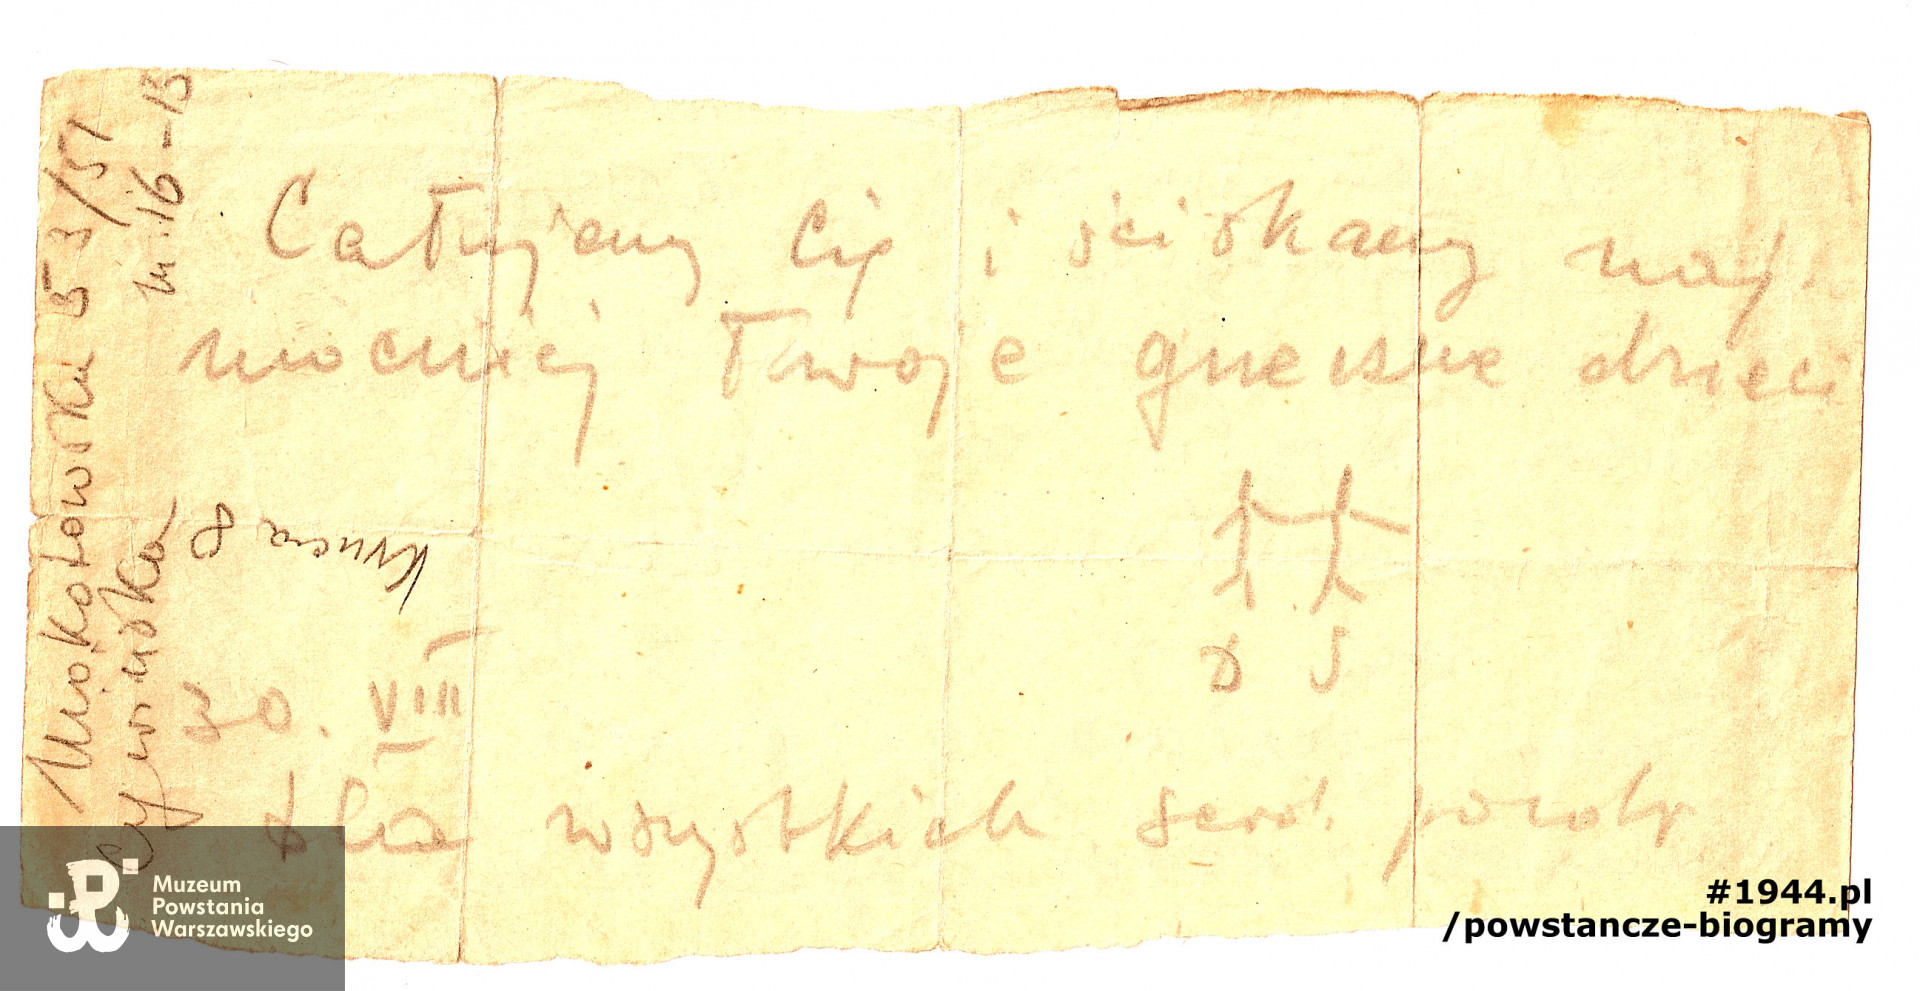 Całujemy Cię i ściskamy naj-
mocniej Twoje grzeszne dzieci
D J
30. VIII
Dla wszystkich serd. pozdr
Mokotowska 53/57
m. 16-13
Krucza 8
Muzeum
Powstania
Warszawskiego
#1944.pl
/powstancze-biogramy